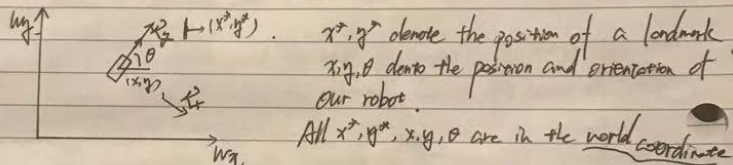 Wy
(x*, y*).
θ
(x,y)
Wx
x*, y* denote the position of a landmark
x,y,θ dento the position and orientation of
our robot.
All x*, y*, x, y, θ are in the world coordinate